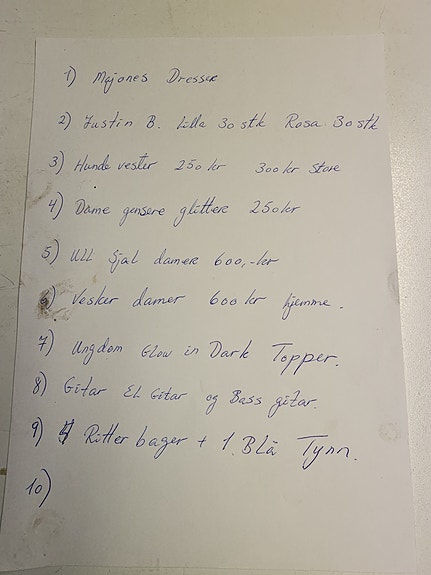 1) Majones Dresser
2) Justin B. Lilla 30 stk Rosa 30 stk
3) Hunde vester 250 kr 300 kr store
4) Dame gensere glittere 250 kr
5) Ull Sjal damere 600,-kr
6) Vesker damer 600 kr hjemme.
7) Ungdom Glow in Dark Topper.
8) Gitar EL Gitar og Bass gitar.
9) 4 Ritter bager + 1. Blå Tynn.
10)